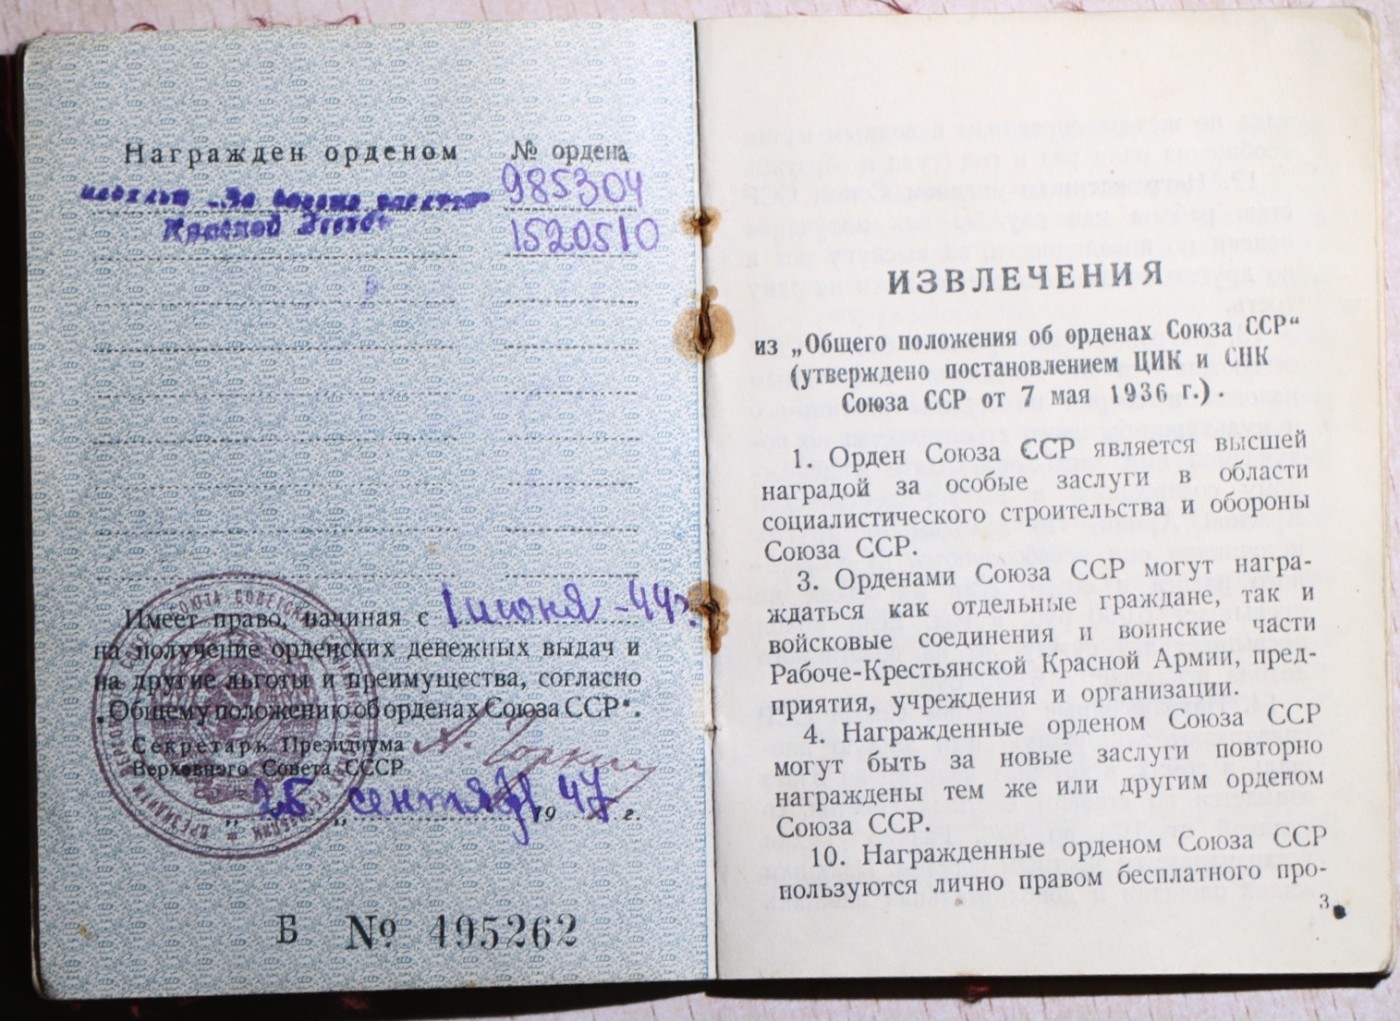 Награжден орденом № ордена
медаль „За боевые заслуги“ 985304
Красной Звезды 1520510
Имеет право, начиная с 1 июня -44г.
на получение орденских денежных выдач и
на другие льготы и преимущества, согласно
„Общему положению об орденах Союза ССР“.
Секретарь Президиума
Верховного Совета СССР
А. Горкин
„25 „ сентября 1947 г.
Б № 495262
ИЗВЛЕЧЕНИЯ
из „Общего положения об орденах Союза ССР“
(утверждено постановлением ЦИК и СНК
Союза ССР от 7 мая 1936 г.)
1. Орден Союза ССР является высшей
наградой за особые заслуги в области
социалистического строительства и обороны
Союза ССР.
3. Орденами Союза ССР могут награ-
ждаться как отдельные граждане, так и
войсковые соединения и воинские части
Рабоче-Крестьянской Красной Армии, пред-
приятия, учреждения и организации.
4. Награжденные орденом Союза ССР
могут быть за новые заслуги повторно
награждены тем же или другим орденом
Союза ССР.
10. Награжденные орденом Союза ССР
пользуются лично правом бесплатного про-
3